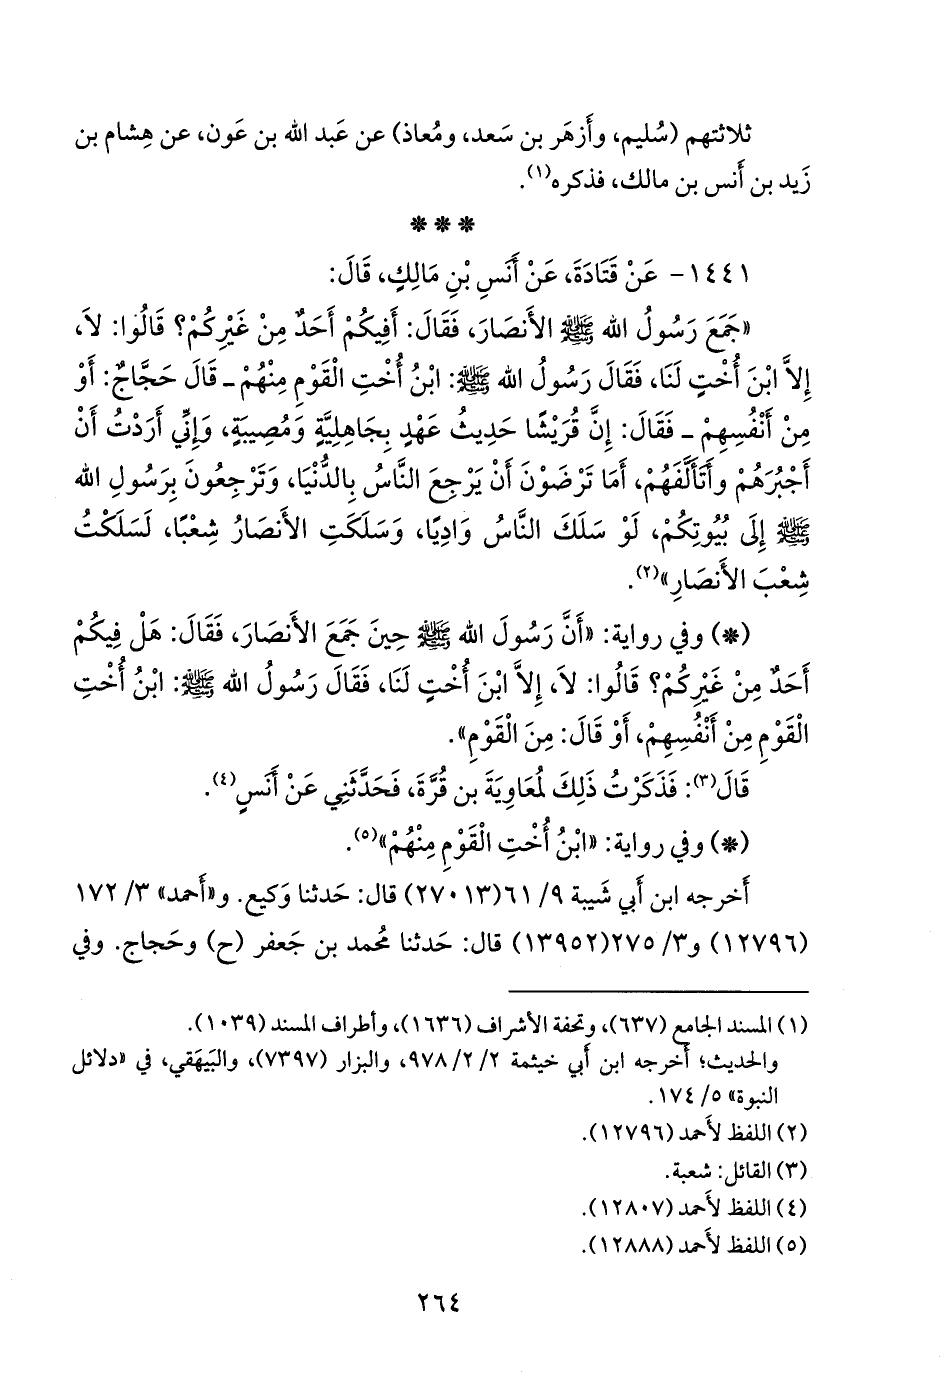 ثلاثتهم (سُليم، وأَزهَر بن سَعد، ومُعاذ) عن عَبد الله بن عَون، عن هِشام بن
زَيد بن أَنس بن مالك، فذكره(١).
* * *
١٤٤١- عَنْ قَتَادَةَ، عَنْ أَنَسِ بْنِ مَالِكٍ، قَالَ:
«جَمَعَ رَسُولُ الله ﷺ الأَنصَارَ، فَقَالَ: أَفِيكُمْ أَحَدٌ مِنْ غَيْرِكُمْ؟ قَالُوا: لاَ،
إِلاَّ ابْنَ أُخْتٍ لَنَا، فَقَالَ رَسُولُ الله ﷺ: ابْنُ أُخْتِ الْقَوْمِ مِنْهُمْ ـ قَالَ حَجَّاجٌ: أَوْ
مِنْ أَنْفُسِهِمْ ـ فَقَالَ: إِنَّ قُرَيْشًا حَدِيثُ عَهْدٍ بِجَاهِلِيَّةٍ وَمُصِيبَةٍ، وَإِنِّي أَرَدْتُ أَنْ
أَجْبُرَهُمْ وأَتَأَلَّفَهُمْ، أَمَا تَرْضَوْنَ أَنْ يَرْجِعَ النَّاسُ بِالدُّنْيَا، وَتَرْجِعُونَ بِرَسُولِ الله
ﷺ إِلَى بُيُوتِكُمْ، لَوْ سَلَكَ النَّاسُ وَادِيًا، وَسَلَكَتِ الأَنصَارُ شِعْبًا، لَسَلَكْتُ
شِعْبَ الأَنصَارِ»(٢).
(*) وفي رواية: «أَنَّ رَسُولَ الله ﷺ حِينَ جَمَعَ الأَنصَارَ، فَقَالَ: هَلْ فِيكُمْ
أَحَدٌ مِنْ غَيْرِكُمْ؟ قَالُوا: لاَ، إِلاَّ ابْنَ أُخْتٍ لَنَا، فَقَالَ رَسُولُ الله ﷺ: ابْنُ أُخْتِ
الْقَوْمِ مِنْ أَنْفُسِهِمْ، أَوْ قَالَ: مِنَ الْقَوْمِ».
قَالَ(٣): فَذَكَرْتُ ذَلِكَ لمُعَاوِيَةَ بن قُرَّةَ، فَحَدَّثَنِي عَنْ أَنَسٍ(٤).
(*) وفي رواية: «ابْنُ أُخْتِ الْقَوْمِ مِنْهُمْ»(٥).
أَخرجه ابن أَبي شَيبة ٩/ ٦١(٢٧٠١٣) قال: حَدثنا وَكيع. و«أَحمد» ٣/ ١٧٢
(١٢٧٩٦) و٣/ ٢٧٥(١٣٩٥٢) قال: حَدثنا مُحمد بن جَعفر (ح) وحَجاج. وفي
(١) المسند الجامع (٦٣٧)، وتحفة الأشراف (١٦٣٦)، وأطراف المسند (١٠٣٩).
والحديث؛ أخرجه ابن أبي خيثمة ٢/ ٢/ ٩٧٨، والبزار (٧٣٩٧)، والبَيهَقي، في «دلائل
النبوة» ٥/ ١٧٤.
(٢) اللفظ لأحمد (١٢٧٩٦).
(٣) القائل: شعبة.
(٤) اللفظ لأحمد (١٢٨٠٧).
(٥) اللفظ لأحمد (١٢٨٨٨).
٢٦٤